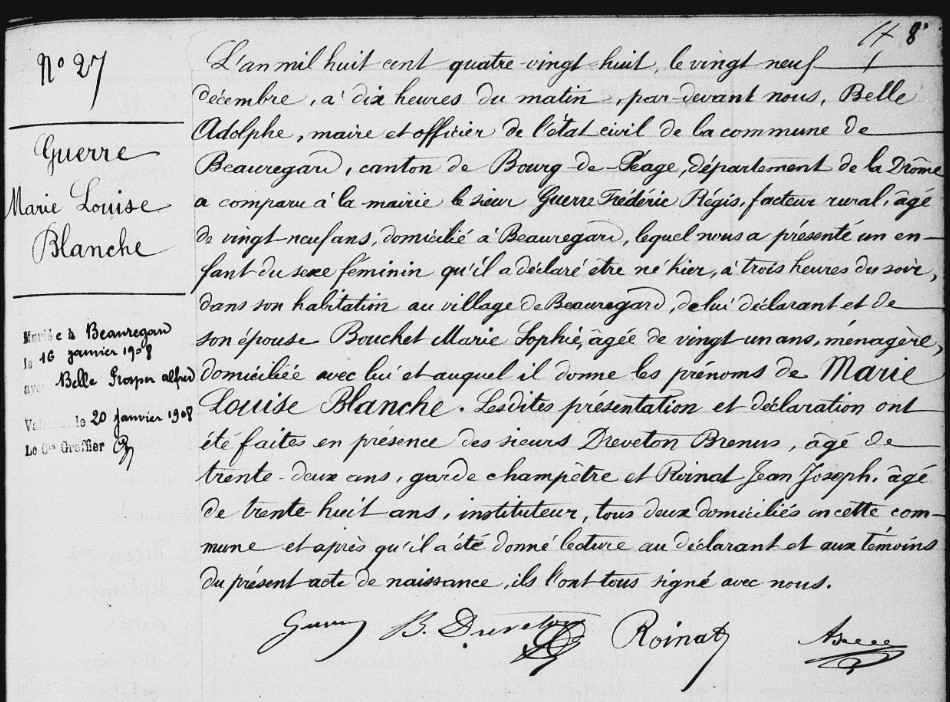 8
N° 27
Guerre
Marie Louise
Blanche
Mariée à Beauregard
le 16 janvier 1908
avec Belle Prosper Alfred
le 20 janvier 1908
Le Cis Greffier
L'an mil huit cent quatre-vingt-huit, le vingt neuf
décembre, à dix heures du matin, par-devant nous, Belle
Adolphe, maire et officier de l'état civil de la commune de
Beauregard, canton de Bourg-de-Péage, département de la Drôme
a comparu à la mairie le sieur Guerre Frédéric Régis, facteur rural, âgé
de vingt-neuf ans, domicilié à Beauregard, lequel nous a présenté un en-
fant du sexe féminin qu'il a déclaré être né hier, à trois heures du soir,
dans son habitation au village de Beauregard, de lui déclarant et de
son épouse Bouchet Marie Sophie, âgée de vingt un ans, ménagère,
domiciliée avec lui et auquel il donne les prénoms de Marie
Louise Blanche. Lesdites présentation et déclaration ont
été faites en présence des sieurs Dreveton Brenus, âgé de
trente-deux ans, garde champêtre et Roinat Jean Joseph, âgé
de trente huit ans, instituteur, tous deux domiciliés en cette com-
mune et après qu'il a été donné lecture au déclarant et aux témoins
du présent acte de naissance, ils l'ont tous signé avec nous.
B. Dreveton Roinat